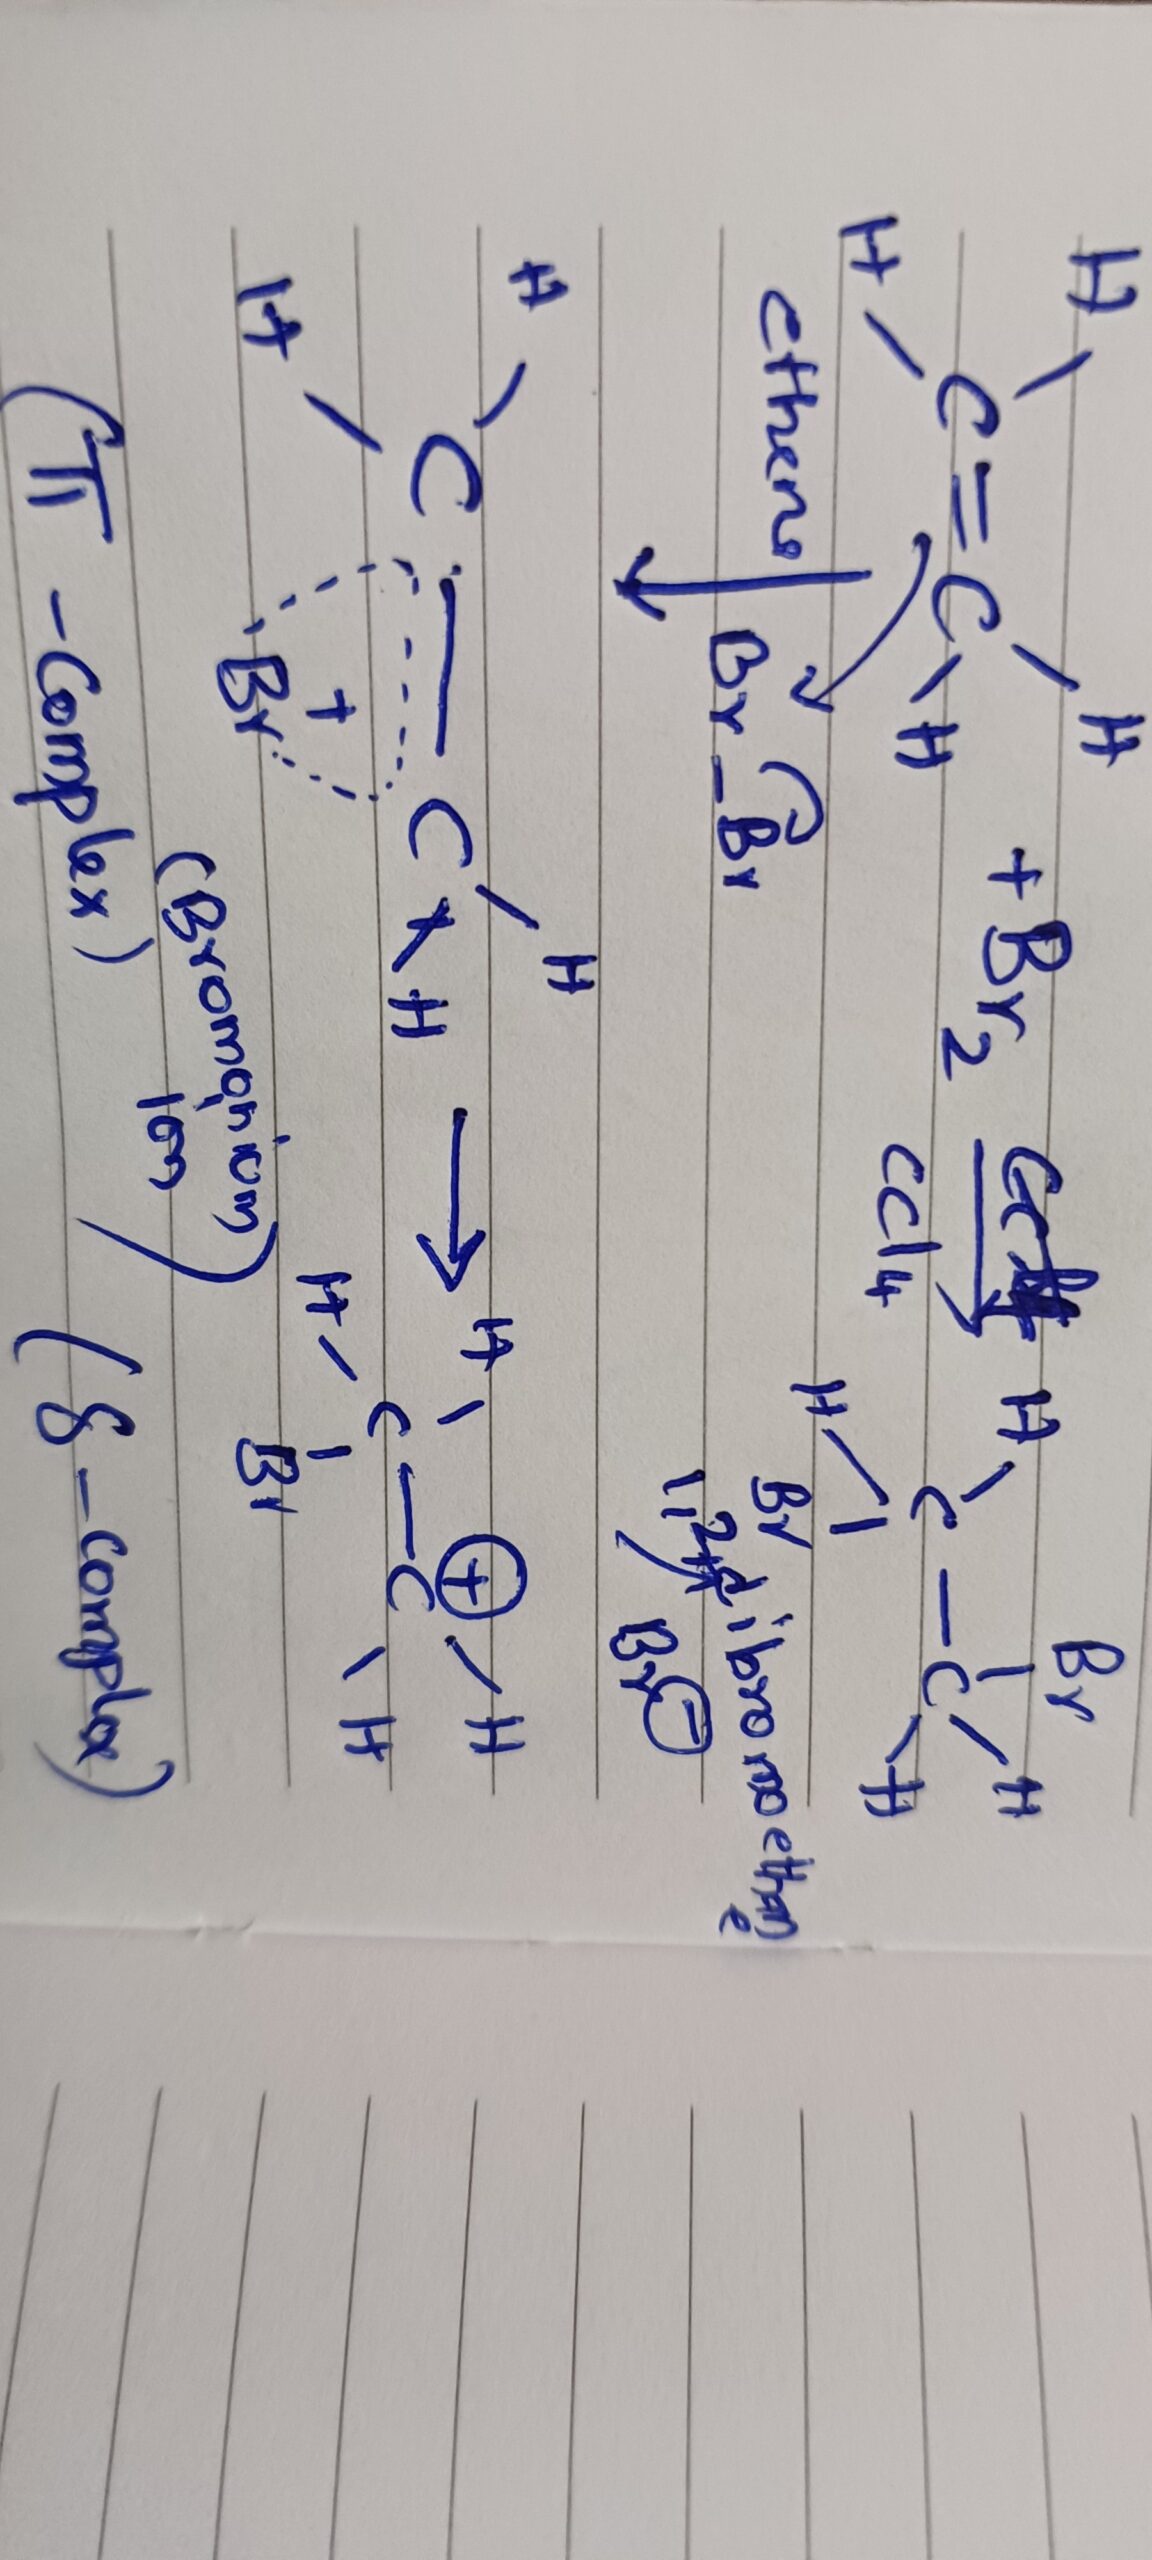 H H H Br H
C = C + Br2 → C - C
H H CCl4 H Br H
ethene Br - Br 1,2 dibromoethane
Br⊖
H H H ⊕ H
C C → C - C
H + H H Br H
Br
(Bromonium
Ion)
(π - complex) (δ - complex)